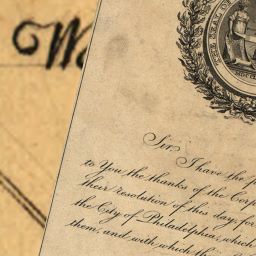 Sir,
I have the
to You the thanks of the Corp
their resolution of this day, for
the City of Philadelphia, which
them; and with which the